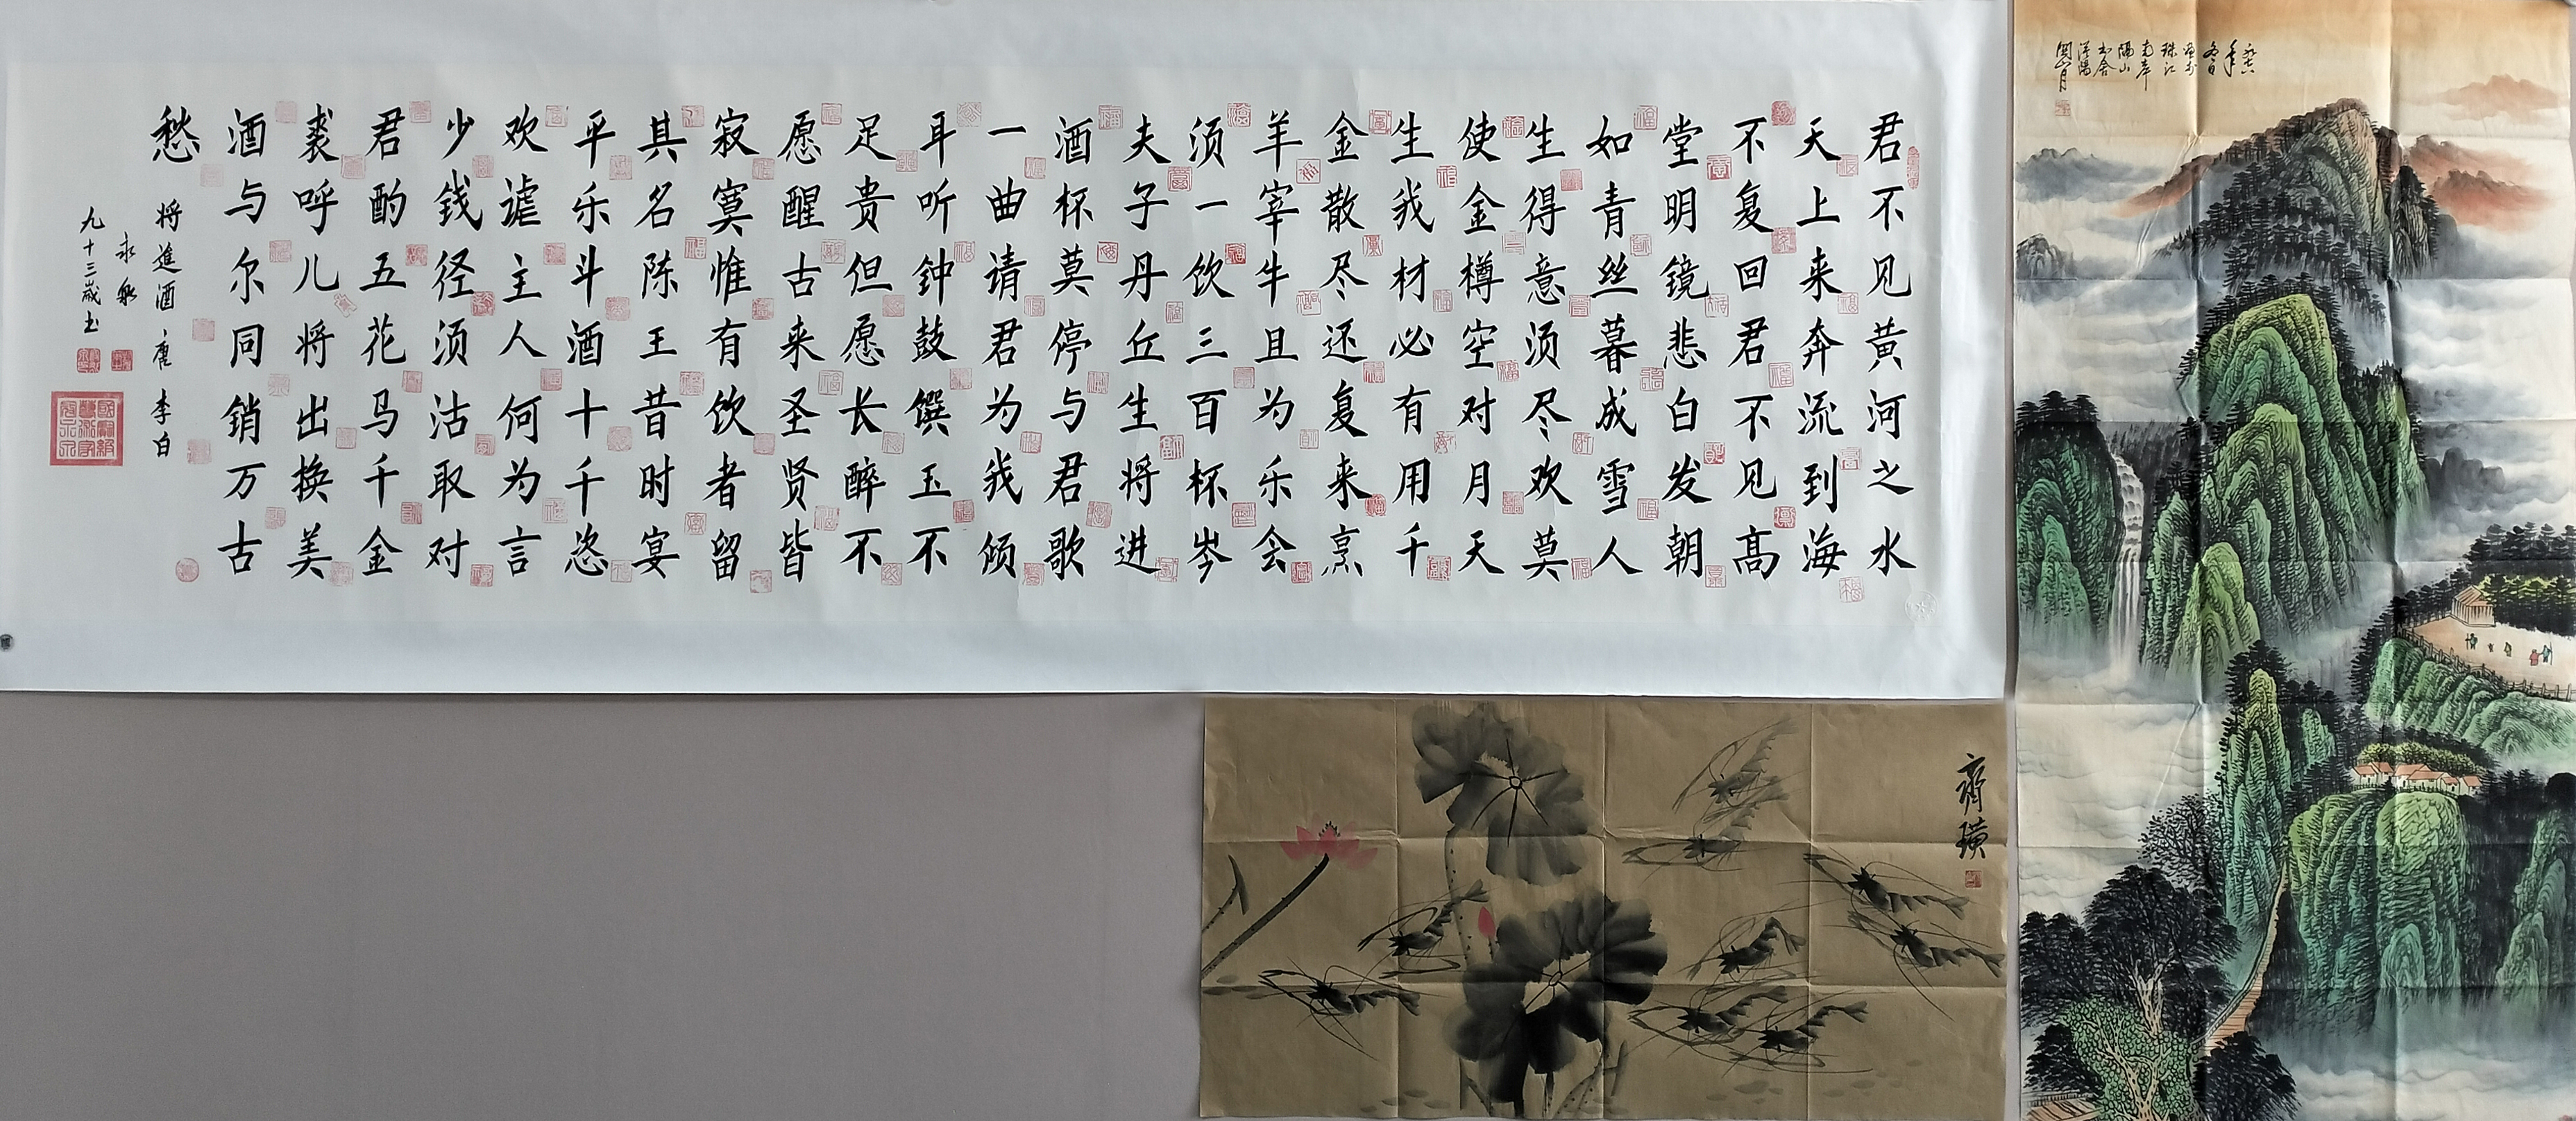 君不见黄河之水
天上来奔流到海
不复回君不见髙
堂明镜悲白发朝
如青丝暮成雪人
生得意须尽欢莫
使金樽空对月天
生我材必有用千
金散尽还复来烹
羊宰牛且为乐会
须一饮三百杯岑
夫子丹丘生将进
酒杯莫停与君歌
一曲请君为我倾
耳听钟鼓馔玉不
足贵但愿长醉不
愿醒古来圣贤皆
寂寞惟有饮者留
其名陈王昔时宴
平乐斗酒十千恣
欢谑主人何为言
少钱径须沽取对
君酌五花马千金
裘呼儿将出换美
酒与尔同销万古
愁
将進酒 唐 李白
永
九十三歲书
冬日
珠江
南岸
隔山
關山月
齊璜